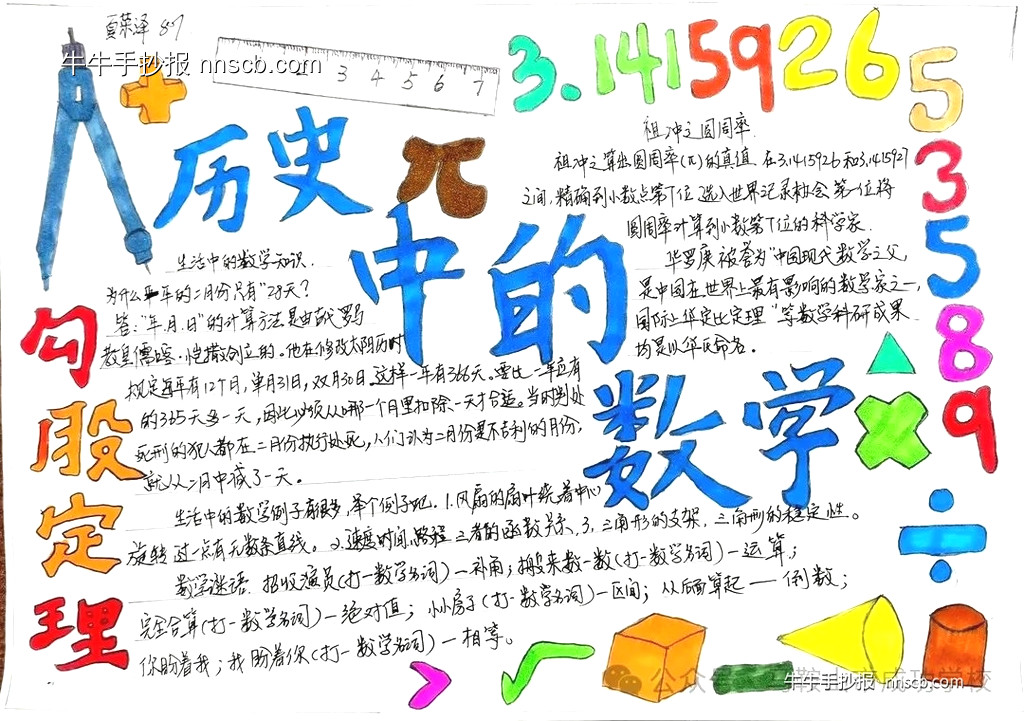 夏荣泽 87
牛牛手抄报 nnscb.com
3 4 5 6 7
3.1415926
5
3
5
8
9
历史
π
中的
数学
勾
股
定
理
祖冲之圆周率
祖冲之算出圆周率(π)的真值 在3.1415926和3.1415927
之间,精确到小数点第7位 选入世界记录协会 第一位将
圆周率计算到小数第7位的科学家.
华罗庚 被誉为"中国现代数学之父,
是中国在世界上最有影响的数学家之一,
国际上华定比定理"等数学科研成果
均是以华氏命名。
生活中的数学知识.
为什么平年的二月份只有"28天?
答:"年.月.日"的计算方法是由古代罗马
教皇儒略·恺撒创立的。他在修改太阳历时
规定每年有12个月,单月31日,双月30日 这样一年有366天。要比一年应有
的365天多一天,因此必须从哪一个月里扣除一天才合适。当时判处
死刑的犯人都在二月份执行处死,人们认为二月份是不吉利的月份,
就从二月中减了一天。
生活中的数学例子有很多,举个例子吧. 1.风扇的扇叶绕着中心
旋转 过一点有无数条直线。 2.速度时间 路程 三者的函数关系、3.三角形的支架.三角形的稳定性。
数学谜语. 招收演员(打一数学名词)—补角; 搬来数一数(打一数学名词)—运算;
完全合算(打一数学名词)—绝对值; 小小房子(打一数学名词)—区间; 从后面算起——倒数;
你盼着我;我盼着你(打一数学名词)—相等。
公众号
牛牛手抄报 nnscb.com